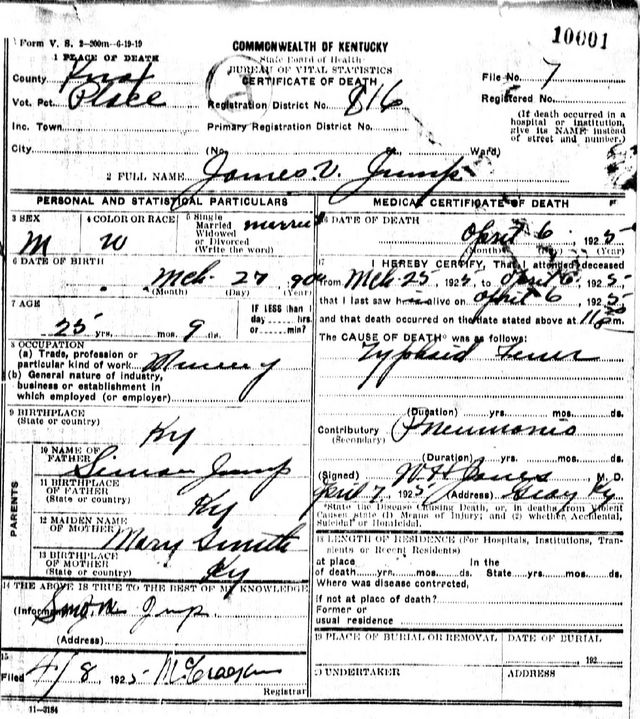 10001
Form V. S. 2-300m-6-19-19
COMMONWEALTH OF KENTUCKY
1 PLACE OF DEATH
State Board of Health
County Knox
BUREAU OF VITAL STATISTICS
CERTIFICATE OF DEATH
File No. 7
Vot. Pct. Place
Registration District No. 816
Registered No.
Inc. Town
Primary Registration District No.
(If death occurred in a hospital or institution, give its NAME instead of street and number.)
City
(No
Ward)
2 FULL NAME James V. Jump
PERSONAL AND STATISTICAL PARTICULARS
3 SEX
M
4 COLOR OR RACE
W
5 Single
Married
Widowed
or Divorced
(Write the word)
Married
6 DATE OF BIRTH
Mch 27
(Month) (Day) (Year)
7 AGE
25 yrs. mos. 9 ds.
IF LESS than 1 day hrs. or min?
8 OCCUPATION
(a) Trade, profession or particular kind of work
(b) General nature of industry, business or establishment in which employed (or employer)
9 BIRTHPLACE
(State or country)
Ky
PARENTS
10 NAME OF FATHER
Simon Jump
11 BIRTHPLACE OF FATHER
(State or country)
Ky
12 MAIDEN NAME OF MOTHER
Mary Smith
13 BIRTHPLACE OF MOTHER
(State or country)
Ky
14 THE ABOVE IS TRUE TO THE BEST OF MY KNOWLEDGE
(Informant)
(Address)
15
Filed 4/8 1925
Registrar
11-3184
MEDICAL CERTIFICATE OF DEATH
16 DATE OF DEATH
April 6 1925
(Month) (Day) (Year)
17 I HEREBY CERTIFY, That I attended deceased
from Mch 25, 1925, to April 6, 1925
that I last saw h alive on April 6, 1925
and that death occurred on the date stated above at m.
The CAUSE OF DEATH* was as follows:
Typhoid Fever
(Duration) yrs. mos. ds.
Contributory Pneumonia
(Secondary)
(Duration) yrs. mos. ds.
(Signed) W H Jones M. D.
April 7, 1925 (Address) Gray Ky
*State the Disease Causing Death, or, in deaths from Violent Causes state (1) Means of Injury; and (2) whether Accidental, Suicidal or Homicidal.
18 LENGTH OF RESIDENCE (For Hospitals, Institutions, Transients or Recent Residents)
At place of death yrs. mos. ds. In the State yrs. mos. ds.
Where was disease contrcted,
if not at place of death?
Former or
usual residence
19 PLACE OF BURIAL OR REMOVAL
DATE OF BURIAL
192
20 UNDERTAKER
ADDRESS